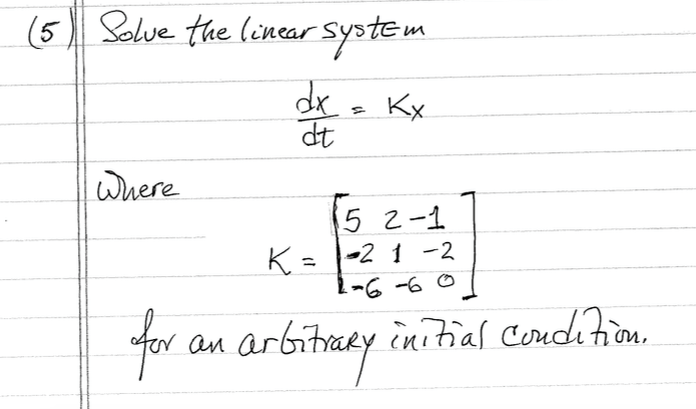 (5) Solve the linear system
dx/dt = Kx
Where
K = [5 2 -1
-2 1 -2
-6 -6 0]
for an arbitrary initial condition.